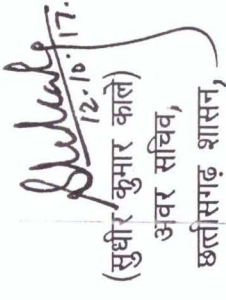 12.10.17.
(सुधीर कुमार काले)
अवर सचिव,
छत्तीसगढ़ शासन,